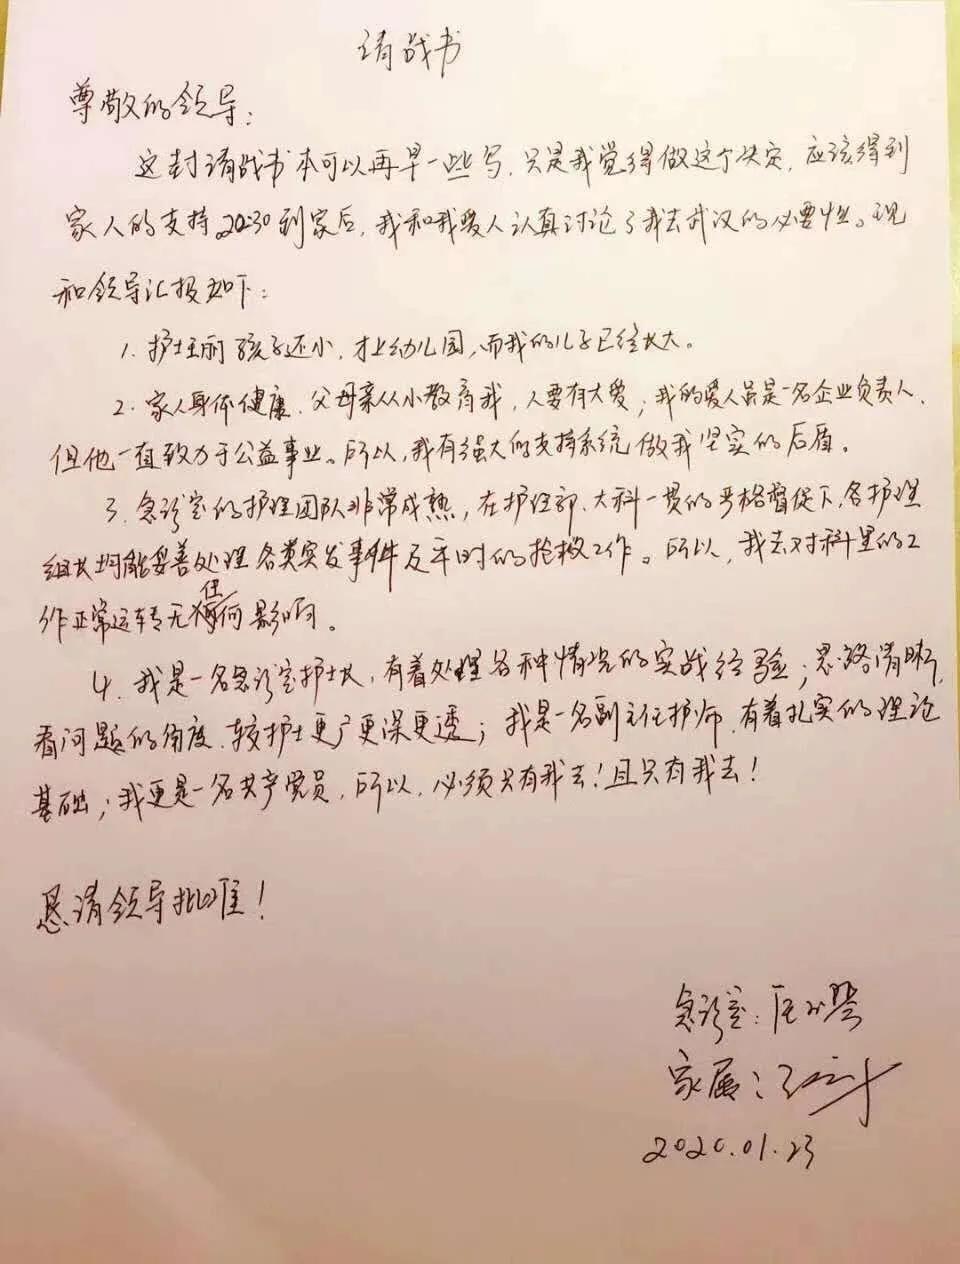 请战书
尊敬的领导：
这封请战书本可以再早一些写，只是我觉得做这个决定，应该得到
家人的支持。20:30到家后，我和我爱人认真讨论了我去武汉的必要性。现
和领导汇报如下：
1. 护士王丽 孩子还小，才上幼儿园，而我的儿子已经长大。
2. 家人身体健康，父母亲从小教育我，人要有大爱；我的爱人虽是一名企业负责人，
但他一直致力于公益事业。所以，我有强大的支持系统做我坚实的后盾。
3. 急诊室的护理团队非常成熟，在护理部、大科一贯的严格督促下，各护理
组长均能妥善处理各类突发事件及平时的抢救工作。所以，我去对科里的工
作正常运转无任何影响。
4. 我是一名急诊室护士长，有着处理各种情况的实战经验；思路清晰，
看问题的角度，较护士更广更深更透；我是一名副主任护师，有着扎实的理论
基础；我更是一名共产党员，所以，必须只有我去！且只有我去！
恳请领导批准！
急诊室：
家属：
2020.01.23